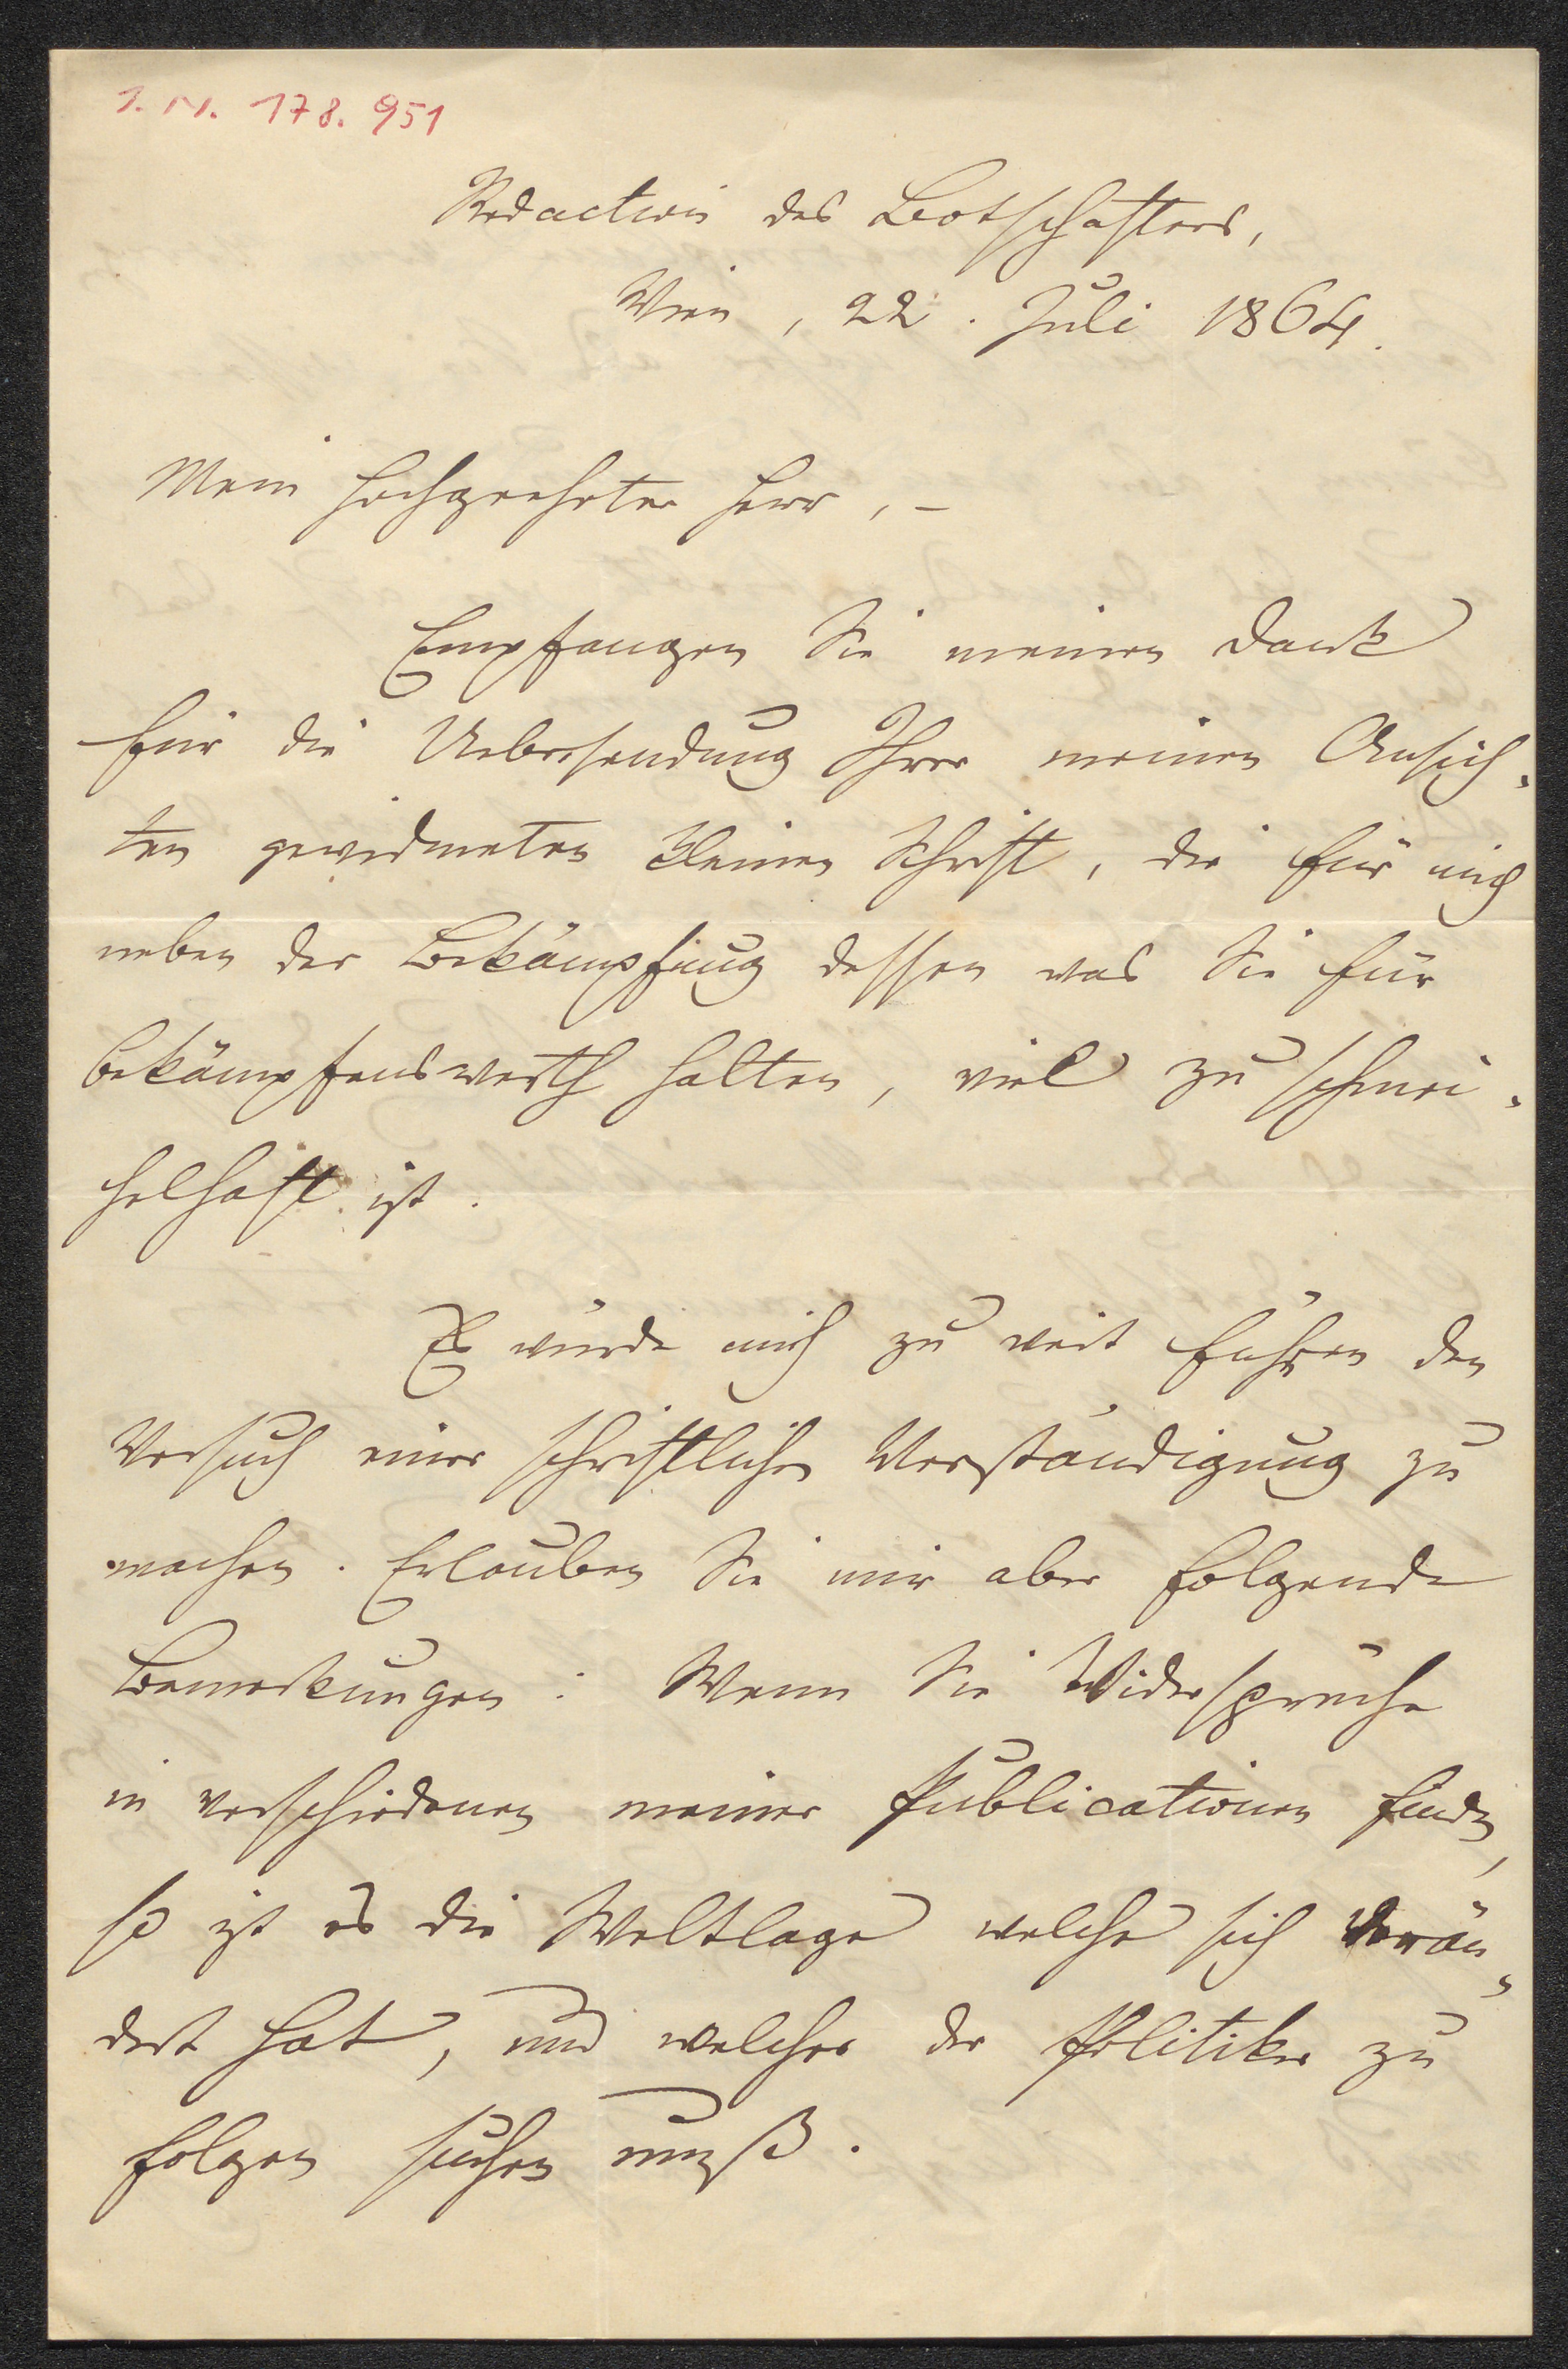 I. N. 178.951
Redaction des Botschafters,
Wien, 22. Juli 1864.
Mein hochgeehrter Herr, –
Empfangen Sie meinen Dank
für die Uebersendung Ihrer meinen Ansich-
ten gewidmeten kleinen Schrift, die für mich
neben der Bekämpfung dessen was Sie für
bekämpfenswerth halten, viel zu schmei-
chelhaft ist.
Es würde mich zu weit führen den
Versuch einer schriftlichen Verständigung zu
machen. Erlauben Sie mir aber folgende
Bemerkungen: Wenn Sie Widersprüche
in verschiedenen meiner Publicationen finden,
so ist es die Weltlage welche sich verän-
dert hat, und welcher der Politiker zu
folgen suchen muß.